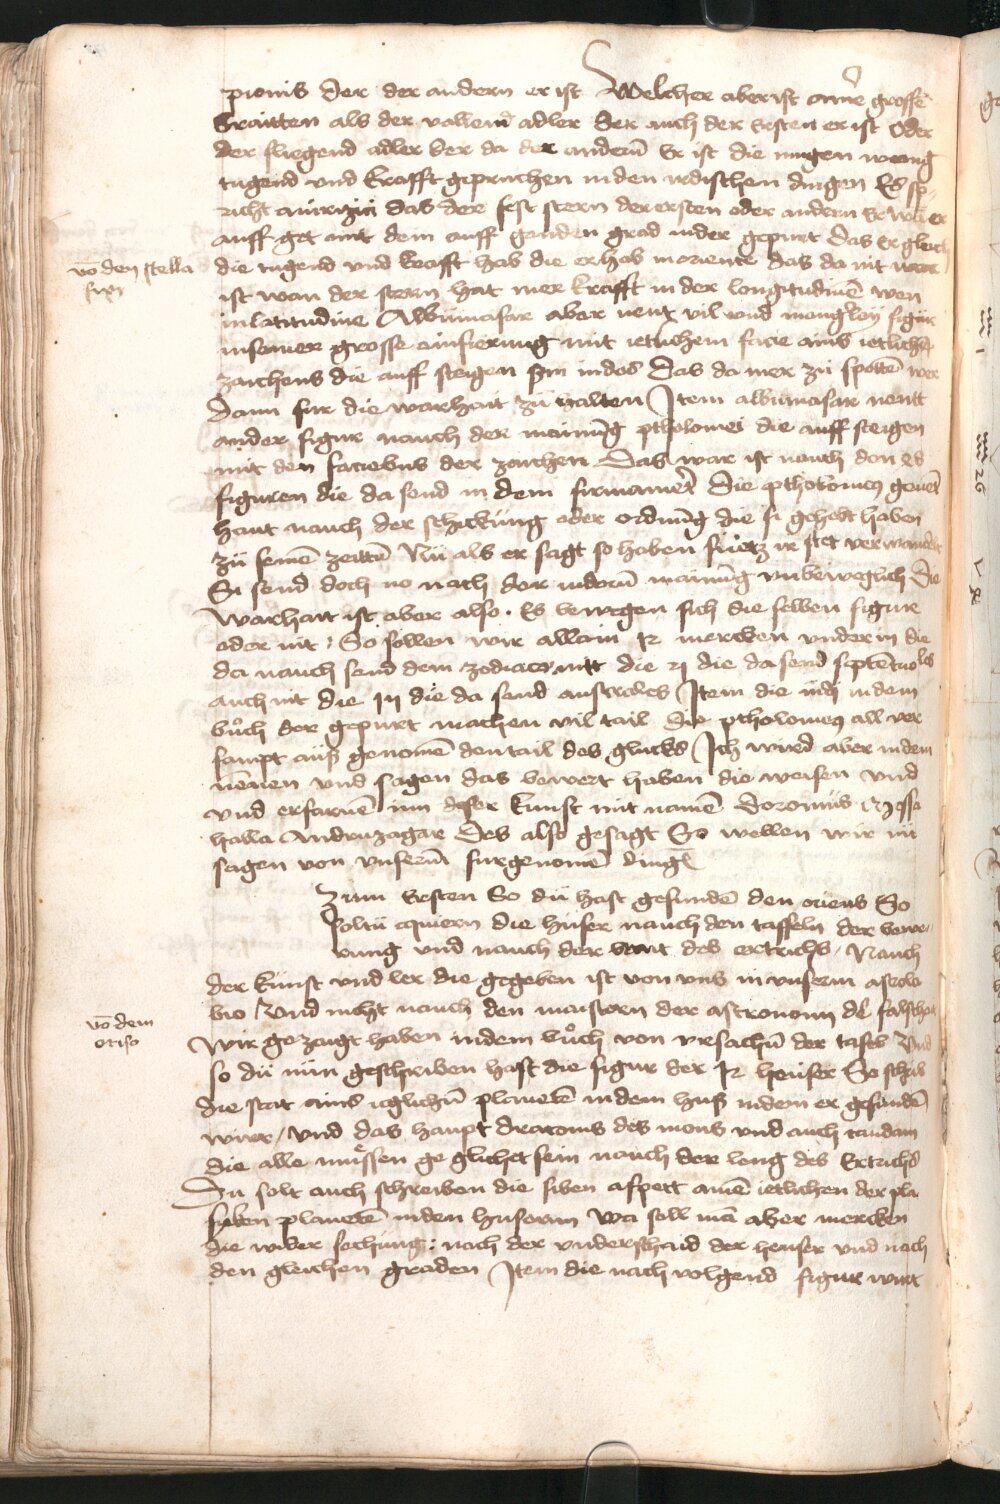 pionis der der andern er ist Welcher aber ist ainer grossē
braitten als der vallend adler der auch der ersten er ist Oder
der fliegend adler der da der andern Er ist die mügen wenig
tugend vnd krafft geprauchen in den irdischen dingen Es sp
richt das der fest stern der ersten oder andern
auff get mit dem auff genden grad in der gepurt Das er gleich
vō den stella
die tugend vnd krafft hab die er hab in oriente das da nit war
fixis
ist wan der stern hat mer krafft in der longitudinē wen
in latitudine Albumasar aber nent vil vnd mengerley figur
in seiner grosse einfierung mit ietlichem facie ains ietlichē
zaichens die auff steigen sin in das Das da mer zü spottē wer
Dann fur die warhait zü halten Item albumasar nentt
ander figur nauch der mainūg ptholomei die auff steigen
mit den faciebus der zaichen Das war ist nauch den 28
figuren die da send in dem firmamēt Die ptholomeus genēt
haut nauch der schickūng oder ordnūg die si gehebt haben
zü seinē zeittē Nü als er sagt so haben ir stet verwandelt
Si send doch no nach der indorū mainūg vnbeweglich Die
Warhait ist aber also. Es bewegen sich die selben figure
oder nit / So sollen wir allain 12 mercken vnder in die
da nauch send dem zodiaco nitt die 21 die da send septētrioles
auch nit die da send australes Item die indi in dem
büch der gepurt machen vil tail Die ptholomeus all ver
sampt auß genomē den tail des glucks Ich wird aber in dem
nēnen vnd sagen das bewert haben die weisen vnd
vnd erfarnē inn diser kunst mit namē Doronius Messa
halla Andruzagar Des also gesagt So wellen wir nü
sagen von vnserm furgenomē ding
Zum Ersten So du hast gefundē den oriens So
soltu equiern die huser nauch den taffeln der bewe
rung vnd nauch der brait des ertrichs / Nauch
der kunst vnd ler die gegeben ist von vns in vnserm astrola
bio / Vnd nicht nauch den maistern der astronomy der falschait
vō dem
Wir gezaigt haben in dem büch von vrsachū der tafel Vnd
oriso
so du nun geschriben hast die figur der 12 heuser So schrib
die stat ains ieglichn planetē in dem huß in dem er gefundē
wirt / vnd das haupt draconis des mons vnd auch caudam
die alle müssen ge glichet sein nauch der leng des Ertrichs
Du solt auch schreiben die siben aspect ainē ietlichen der pla
siben planetē in den husern Wa soll mā aber mercken
die wider sechung: nach der vnderschaid der heuser vnd nach
den gleichen graden Item die nach volgend figur wirt